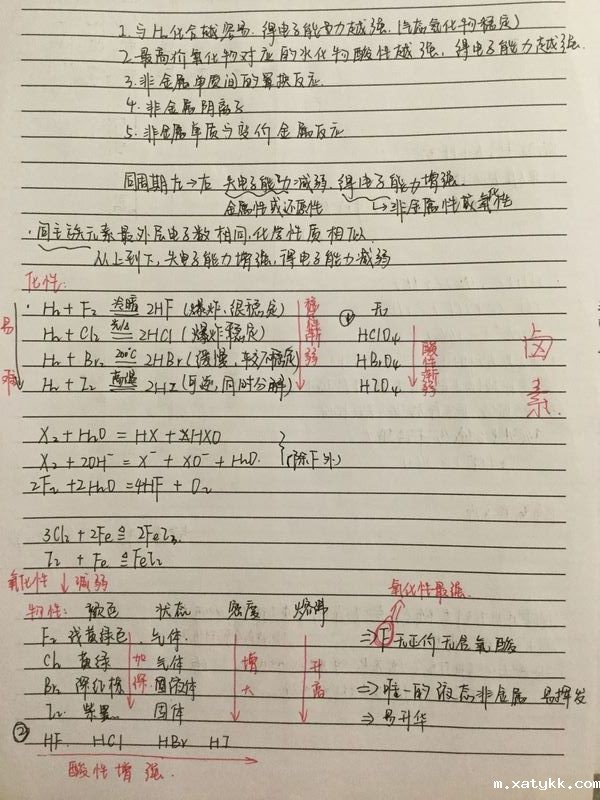 1. 与H₂化合越容易, 得电子能力越强. (气态氢化物稳定)
2. 最高价氧化物对应的水化物酸性越强, 得电子能力越强.
3. 非金属单质间的置换反应.
4. 非金属阴离子
5. 非金属单质与变价金属反应
同周期左→右 失电子能力减弱. 得电子能力增强.
金属性或还原性 → 非金属性或氧化性
· 同主族元素最外层电子数相同, 化学性质相似
从上到下, 失电子能力增强, 得电子能力减弱
化性:
易 · H₂ + F₂ 冷暗 2HF (爆炸, 很稳定) ① 无
H₂ + Cl₂ 光/点 2HCl (爆炸 稳定) HClO₄
H₂ + Br₂ 200℃ 2HBr (缓慢, 较不稳定) HBrO₄
难 H₂ + I₂ 高温 2HI (可逆, 同时分解) HIO₄
稳定性渐弱
酸性渐弱
卤素
X₂ + H₂O = HX + HXO
X₂ + 2OH⁻ = X⁻ + XO⁻ + H₂O. (除F外)
2F₂ + 2H₂O = 4HF + O₂
3Cl₂ + 2Fe ≜ 2FeI₃.
I₂ + Fe ≜ FeI₂
氧化性 ↓ 减弱
氧化性最强.
物性: 颜色 状态 密度 熔沸
F₂ 浅黄绿色. 气体. ⇒ F 无正价 无含氧酸
Cl₂ 黄绿 气体
Br₂ 深红棕 固液体 ⇒ 唯一的液态非金属 易挥发
I₂. 紫黑. 固体 ⇒ 易升华
加深
增大
升高
② HF. HCl HBr HI
酸性增强.
m.xatykk.com